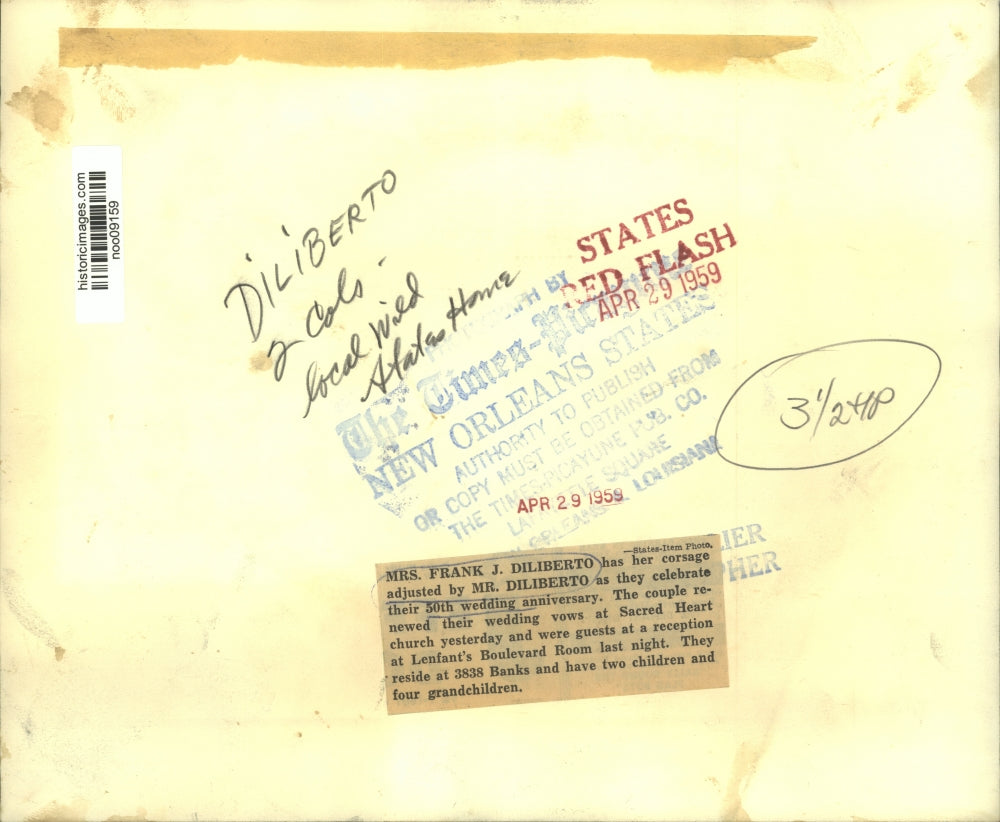 historicimages.com
noo09159
DILIBERTO
2 Cols.
local Wild
States Home
STATES
RED FLASH
APR 29 1959
PH BY
The Times-Picayune
NEW ORLEANS STATES
AUTHORITY TO PUBLISH
OR COPY MUST BE OBTAINED FROM
THE TIMES-PICAYUNE PUB. CO.
LAFAYETTE SQUARE
NEW ORLEANS LOUISIANA
APR 29 1959
3 1/2
IER
PHER
—States-Item Photo.
MRS. FRANK J. DILIBERTO has her corsage
adjusted by MR. DILIBERTO as they celebrate
their 50th wedding anniversary. The couple re-
newed their wedding vows at Sacred Heart
church yesterday and were guests at a reception
at Lenfant's Boulevard Room last night. They
reside at 3838 Banks and have two children and
four grandchildren.